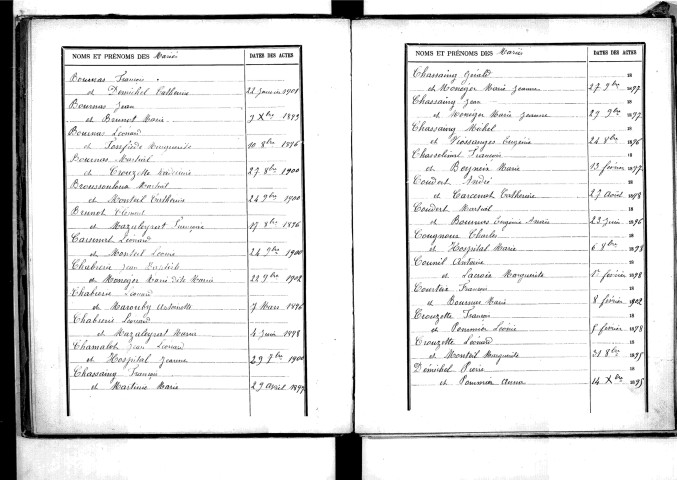 NOMS ET PRÉNOMS DES Mariés DATES DES ACTES
Bournas François
et Demichel Catherine 22 Janvier 1901
Bournas Jean
et Brunot Marie 9 Xbre 1899
Bournas Léonard
et Marguerite 10 8bre 1896
Bournas Martial
et Crouzette 27 8bre 1900
Martial
et Monteil Catherine 24 9bre 1900
Brunot Léonard
et Mazaleyrat Françoise 17 8bre 1896
Léonard
et Monteil Léonie 24 9bre 1900
Chabrerie Jean
et Monezer Marie dite Maria 22 9bre 1902
Chabrerie Léonard
et Antoinette 7 Mars 1896
Chabrerie Léonard
et Mazaleyrat Maria 4 Juin 1898
Chamalot Jean Léonard
et Hospital Jeanne 29 7bre 1900
Chassaing François
et Martinie Marie 29 Avril 1897
NOMS ET PRÉNOMS DES Mariés DATES DES ACTES
Chassaing Gérald 18
et Monezer Marie Jeanne 27 9bre 1897
Chassaing Jean 18
et Monezer Marie Jeanne 29 9bre 1897
Chassaing Michel 18
et Vicssanges Eugénie 24 8bre 1896
François 18
et Marie 13 février 1897
Coudert André 18
et Carcenot Catherine 27 Août 1898
Coudert Martial 18
et Bournas Eugénie 23 Juin 1896
Cougnoux Charles 18
et Hospital Marie 6 8bre 1898
Counil Antoine 18
et Lacroix Marguerite 1er février 1898
Courtiat François 18
et Bournas Marie 8 février 1902
Crouzette François 18
et Pommier Léonie 8 février 1898
Crouzette Léonard 18
et Monteil Marguerite 31 8bre 1895
Demichel Pierre 18
et Pommier Anna 14 Xbre 1895